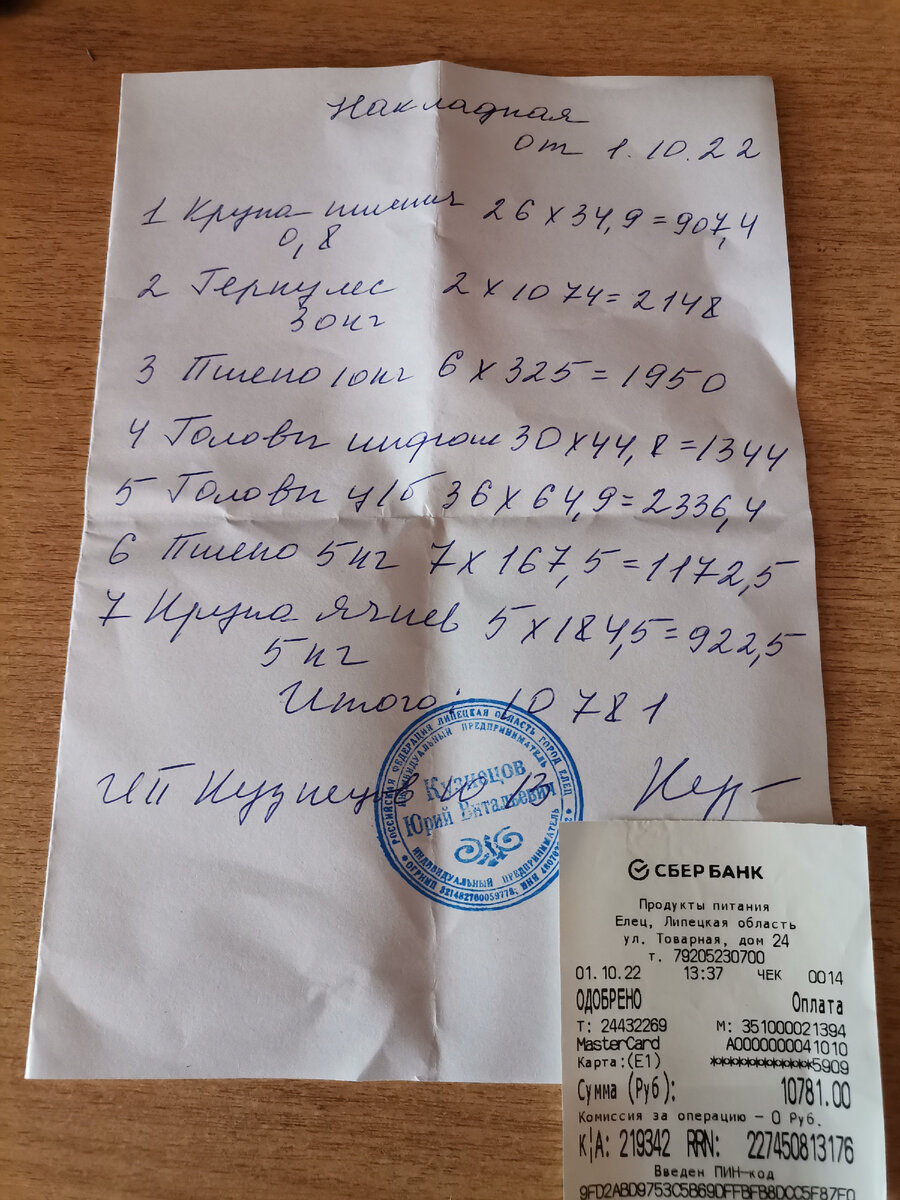 Накладная
от 1.10.22
1 Крупа пшенич 26 х 34,9 = 907,4
0,8
2 Геркулес 2 х 1074 = 2148
30 кг
3 Пшено 10 кг 6 х 325 = 1950
4 Головы 30 х 44,8 = 1344
5 Головы 36 х 64,9 = 2336,4
6 Пшено 5 кг 7 х 167,5 = 1172,5
7 Крупа ячнев 5 х 184,5 = 922,5
5 кг
Итого: 10781
ИП Кузнецов Ю В
РОССИЙСКАЯ ФЕДЕРАЦИЯ ЛИПЕЦКАЯ ОБЛАСТЬ ГОРОД ЕЛЕЦ
ИНДИВИДУАЛЬНЫЙ ПРЕДПРИНИМАТЕЛЬ
Кузнецов
Юрий Витальевич
ИНДИВИДУАЛЬНЫЙ ПРЕДПРИНИМАТЕЛЬ
СБЕР БАНК
Продукты питания
Елец, Липецкая область
ул. Товарная, дом 24
т. 79205230700
01.10.22 13:37 ЧЕК 0014
ОДОБРЕНО Оплата
Т: 24432269 М: 351000021394
MasterCard A0000000041010
Карта:(E1) ************5909
Сумма (Руб): 10781.00
Комиссия за операцию - 0 Руб.
К/А: 219342 RRN: 227450813176
Введен ПИН-код